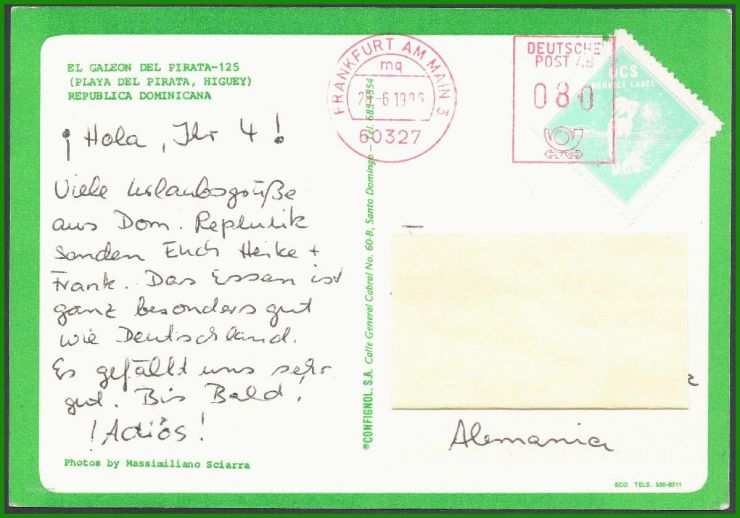 EL GALEON DEL PIRATA-125
(PLAYA DEL PIRATA, HIGUEY)
REPUBLICA DOMINICANA
¡Hola, Ihr 4!
Viele Urlaubsgrüße
aus Dom. Replulik
senden Euch Heike +
Frank. Das Essen ist
ganz besonders gut
wie Deutschland.
Es gefällt uns sehr
gut. Bis Bald!
!Adiós!
Photos by Massimiliano Sciarra
®CONFIGNOL, S.A. Calle General Cabral No. 60-B, Santo Domingo -
FRANKFURT AM MAIN 3
mq
-6.19
60327
DEUTSCHE
POST AG
080
UCS
SERVICE LABEL
Alemania
ECO TELS.